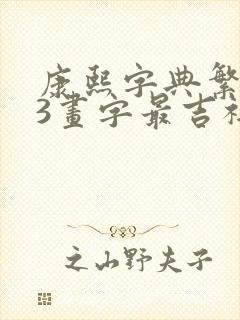 康熙字典繁
3畫字最吉
之山野夫子